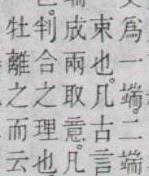 爲一端。二端
束也。凡古言
成兩取意。凡
判合之理也
牡離之而云